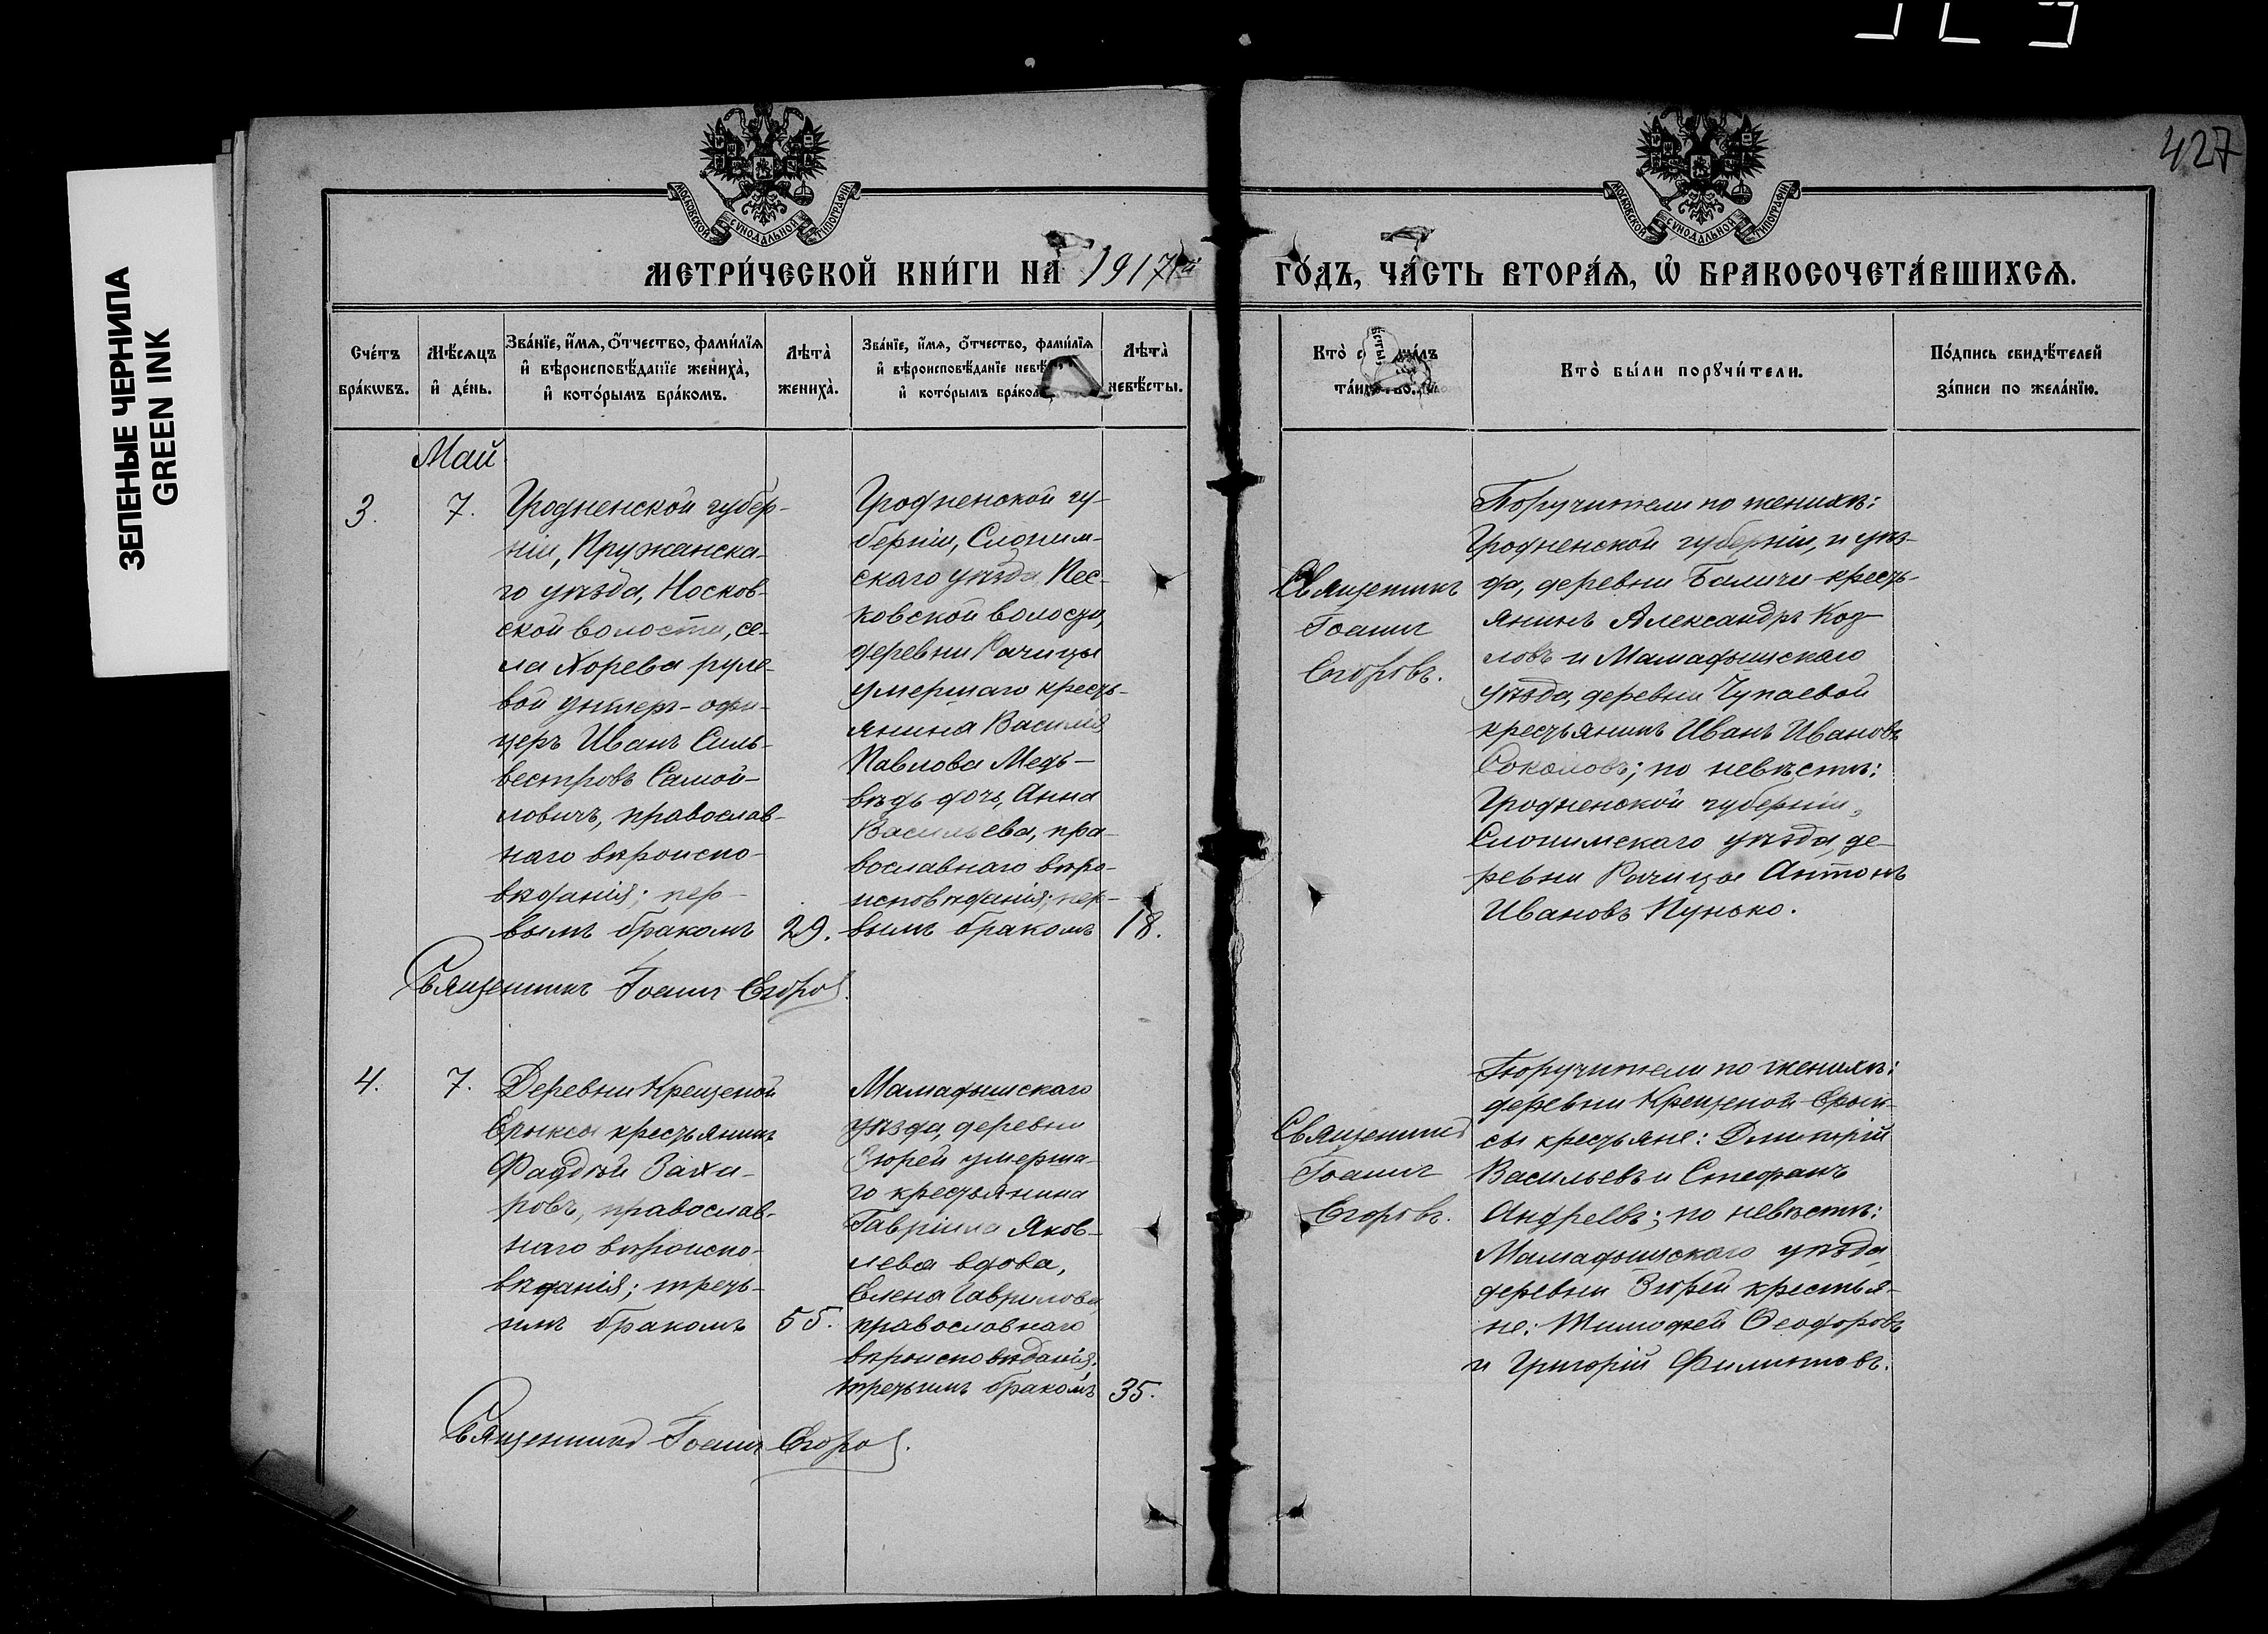 427
ЗЕЛЕНЫЕ ЧЕРНИЛА
GREEN INK
МОСКОВСКОЙ СѴНОДАЛЬНОЙ ТИПОГРАФІИ
МОСКОВСКОЙ СѴНОДАЛЬНОЙ ТИПОГРАФІИ
МЕТРИ́ЧЕСКОЙ КНИ́ГИ НА 1917й
ГО́ДЪ, ЧА́СТЬ ВТОРА́Ѧ, Ѡ҆ БРАКОСОЧЕТА́ВШИХСѦ.
Сче́тъ
бра́кѡвъ.
Мѣ́сѧцъ
и҆ де́нь.
Зва́нїе, и҆́мѧ, ѻ҆́тчество, фами́лїѧ
и҆ вѣроисповѣ́данїе жениха̀,
и҆ кото́рымъ бра́комъ.
Лѣта̀
жениха̀.
Зва́нїе, и҆́мѧ, ѻ҆́тчество, фами́лїѧ
и҆ вѣроисповѣ́данїе невѣ́
и҆ кото́рымъ бра́ком
Лѣта̀
невѣ́сты.
Кто̀
Кто̀ бы́ли порꙋчи́тели.
По́дпись свидѣ́телей
за́писи по жела́нїю.
Май
3.
7.
Гродненской губер-
ніи, Пружанска-
го уѣзда, Носков-
ской волости, се-
ла Хорева руле-
вой унтеръ-офи-
церъ Иванъ Силь-
вестровъ Самой-
ловичъ, православ-
наго вѣроиспо-
вѣданія; пер-
вымъ бракомъ
29.
Гродненской гу-
берніи, Слоним-
скаго уѣзда, Пес-
ковской волости,
деревни Рачицы
умершаго кресть-
янина Василія
Павлова Медь-
вѣдь дочь, Анна
Васильева, пра-
вославнаго вѣро-
исповѣданія; пер-
вымъ бракомъ
18.
Священникъ Іоаннъ Егоровъ.
Священникъ
Іоаннъ
Егоровъ.
Поручители по женихѣ:
Гродненской губерніи, и уѣз-
да, деревни Баличи кресть-
янинъ Александръ Коз-
ловъ и Мамадышскаго
уѣзда, деревни Чупаевой
крестьянинъ Иванъ Ивановъ
Соколовъ; по невѣстѣ:
Гродненской губерніи,
Слонимскаго уѣзда, де-
ревни Рачицы Антонъ
Ивановъ Пунько.
4.
7.
Деревни Крещеной
Ерыксы крестьянинъ
Фаддѣй Заха-
ровъ, православ-
наго вѣроиспо-
вѣданія; треть-
имъ бракомъ
55.
Мамадышскаго
уѣзда, деревни
Зюрей умерша-
го крестьянина
Гавріила Яков-
лева вдова,
Елена Гаврилова
православнаго
вѣроисповѣданія;
третьимъ бракомъ
35.
Священникъ Іоаннъ Егоровъ.
Священникъ
Іоаннъ
Егоровъ.
Поручители по женихѣ:
деревни Крещеной Ерык-
сы крестьяне: Димитрій
Васильевъ и Стефанъ
Андреевъ; по невѣстѣ:
Мамадышскаго уѣзда,
деревни Зюрей крестья-
не: Тимофей Ѳеодоровъ
и Григорій Филиповъ.